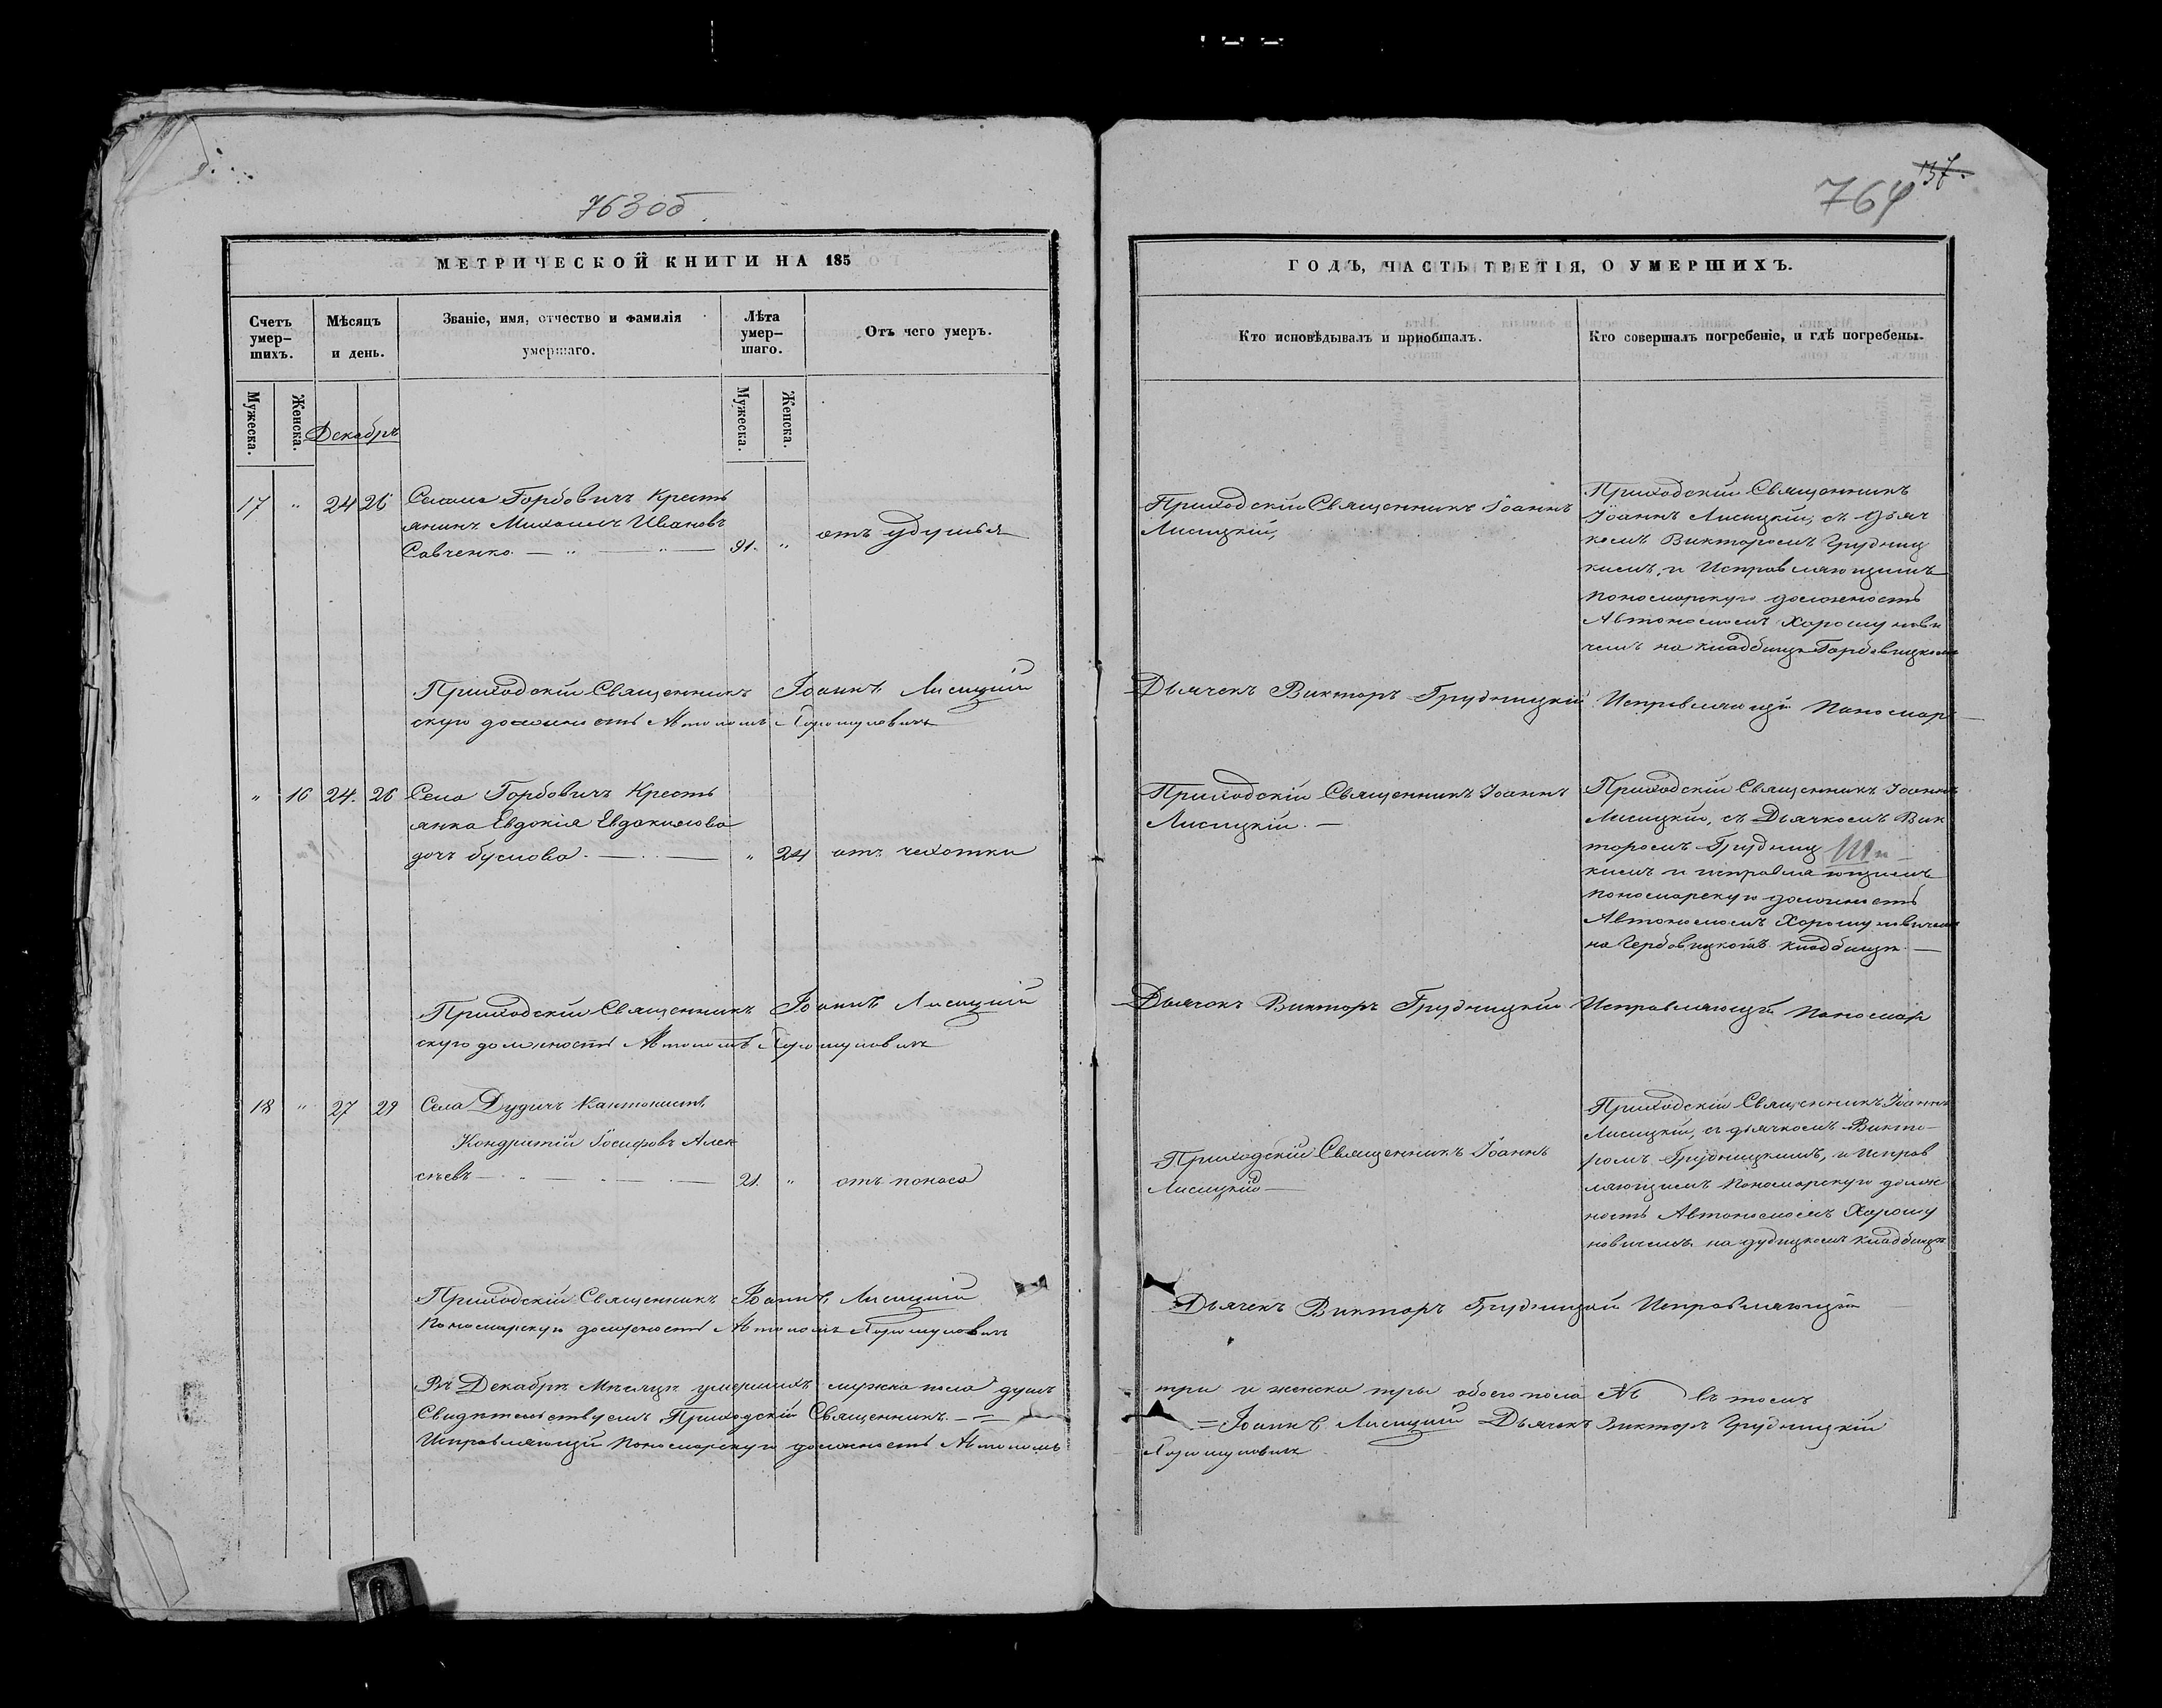 763об.
МЕТРИЧЕСКОЙ КНИГИ НА 185
Счетъ умер-шихъ.
Мѣсяцъ и день.
Званіе, имя, отчество и фамилія умершаго.
Лѣта умер-шаго.
Отъ чего умеръ.
Мужеска.
Женска.
Мужеска.
Женска.
Декабрь
17 " 24 26 Села Горбовичъ Кресть
янинъ Михаилъ Ивановъ
Савченко 91. " отъ удушья
Приходскій Священникъ Іоаннъ Лисицкій
скую должность Автономъ Хорошуновичъ
" 16 24. 26 Села Горбовичъ Кресть
янка Евдокія Евдокимова
дочъ Буслова. " 24 отъ чахотки
Приходскій Священникъ Іоаннъ Лисицкій
скую должность Автономъ Хорошуновичъ
18 " 27 29 Села Дудичъ Кантонистъ
Кондратій Іосифовъ Алек
сѣевъ 21. " отъ поноса
Приходскій Священникъ Іоаннъ Лисицкій
Пономарскую должность Автономъ Хорошуновичъ
Въ Декабрѣ Мѣсяцѣ умершихъ мужска пола душъ
Свидѣтельствуемъ Приходскій Священникъ
Исправляющій Пономарскую должность Автономъ
137.
764
ГОДЪ, ЧАСТЬ ТРЕТІЯ, О УМЕРШИХЪ.
Кто исповѣдывалъ и пріобщалъ.
Кто совершалъ погребеніе, и гдѣ погребены.
Приходскій Священникъ Іоаннъ
Лисицкій,
Приходскій Священникъ
Іоаннъ Лисицкій, съ Дьяч
комъ Викторомъ Грудниц
кимъ, и Исправляющимъ
пономарскую должность
Автономомъ Хорошунови
чемъ на кладбищѣ Горбовицкомъ
Дьячекъ Викторъ Грудницкій Исправляющій Пономар
Приходскій Священникъ Іоаннъ
Лисицкій.
Приходскій Священникъ Іоаннъ
Лисицкій, съ Дьячкомъ Вик
торомъ Грудниц
кимъ и исправляющимъ
пономарскую должность
Автономомъ Хорошуновичемъ
на Горбовицкомъ кладбищѣ
Дьячокъ Викторъ Грудницкій Исправляющій Пономар
Приходскій Священникъ Іоаннъ
Лисицкій
Приходскій Священникъ Іоаннъ
Лисицкій, съ дьячкомъ Викто-
ромъ Грудницкимъ, и Исправ
ляющимъ Пономарскую долж
ность Автономомъ Хорошу
новичемъ на дудицкомъ кладбищѣ
Дьячекъ Викторъ Грудницкій Исправляющій
три и женска три обоего пола въ томъ
Іоаннъ Лисицкій Дьячекъ Викторъ Грудницкій
Хорошуновичъ